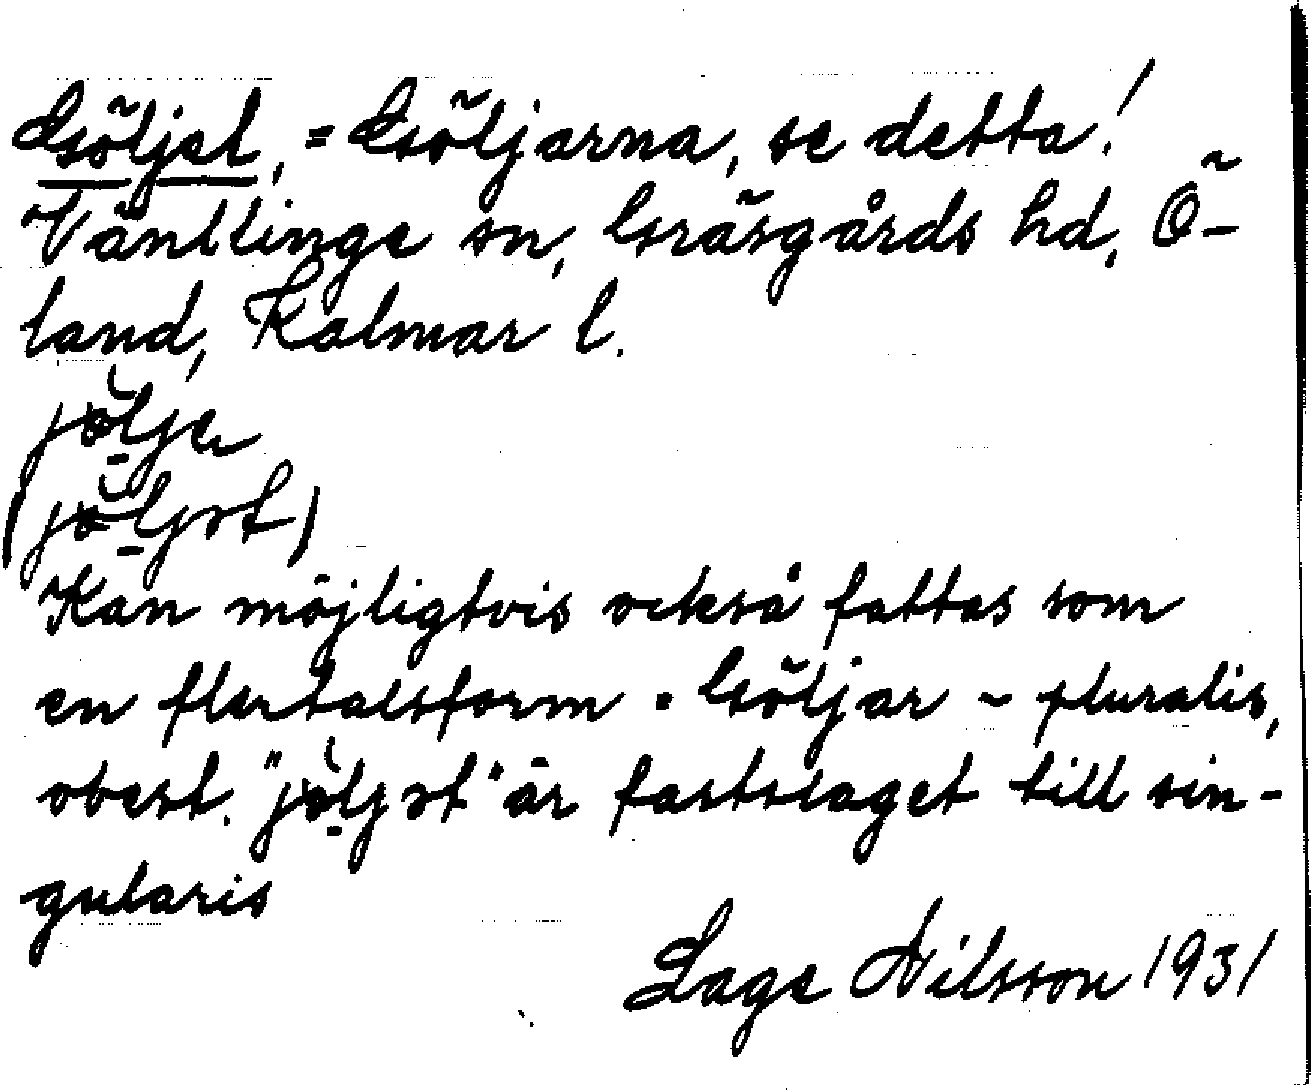 Göljet, = Göljarna, se detta!
Ventlinge sn, Gräsgårds hd, Ö-
land, Kalmar l.
jölje
(jöljət)
Kan möjligtvis också fattas som
en flertalsform = Göljar - pluralis,
obest. "jöljət" är fastslaget till sin-
gularis
Lage Nilsson 1931